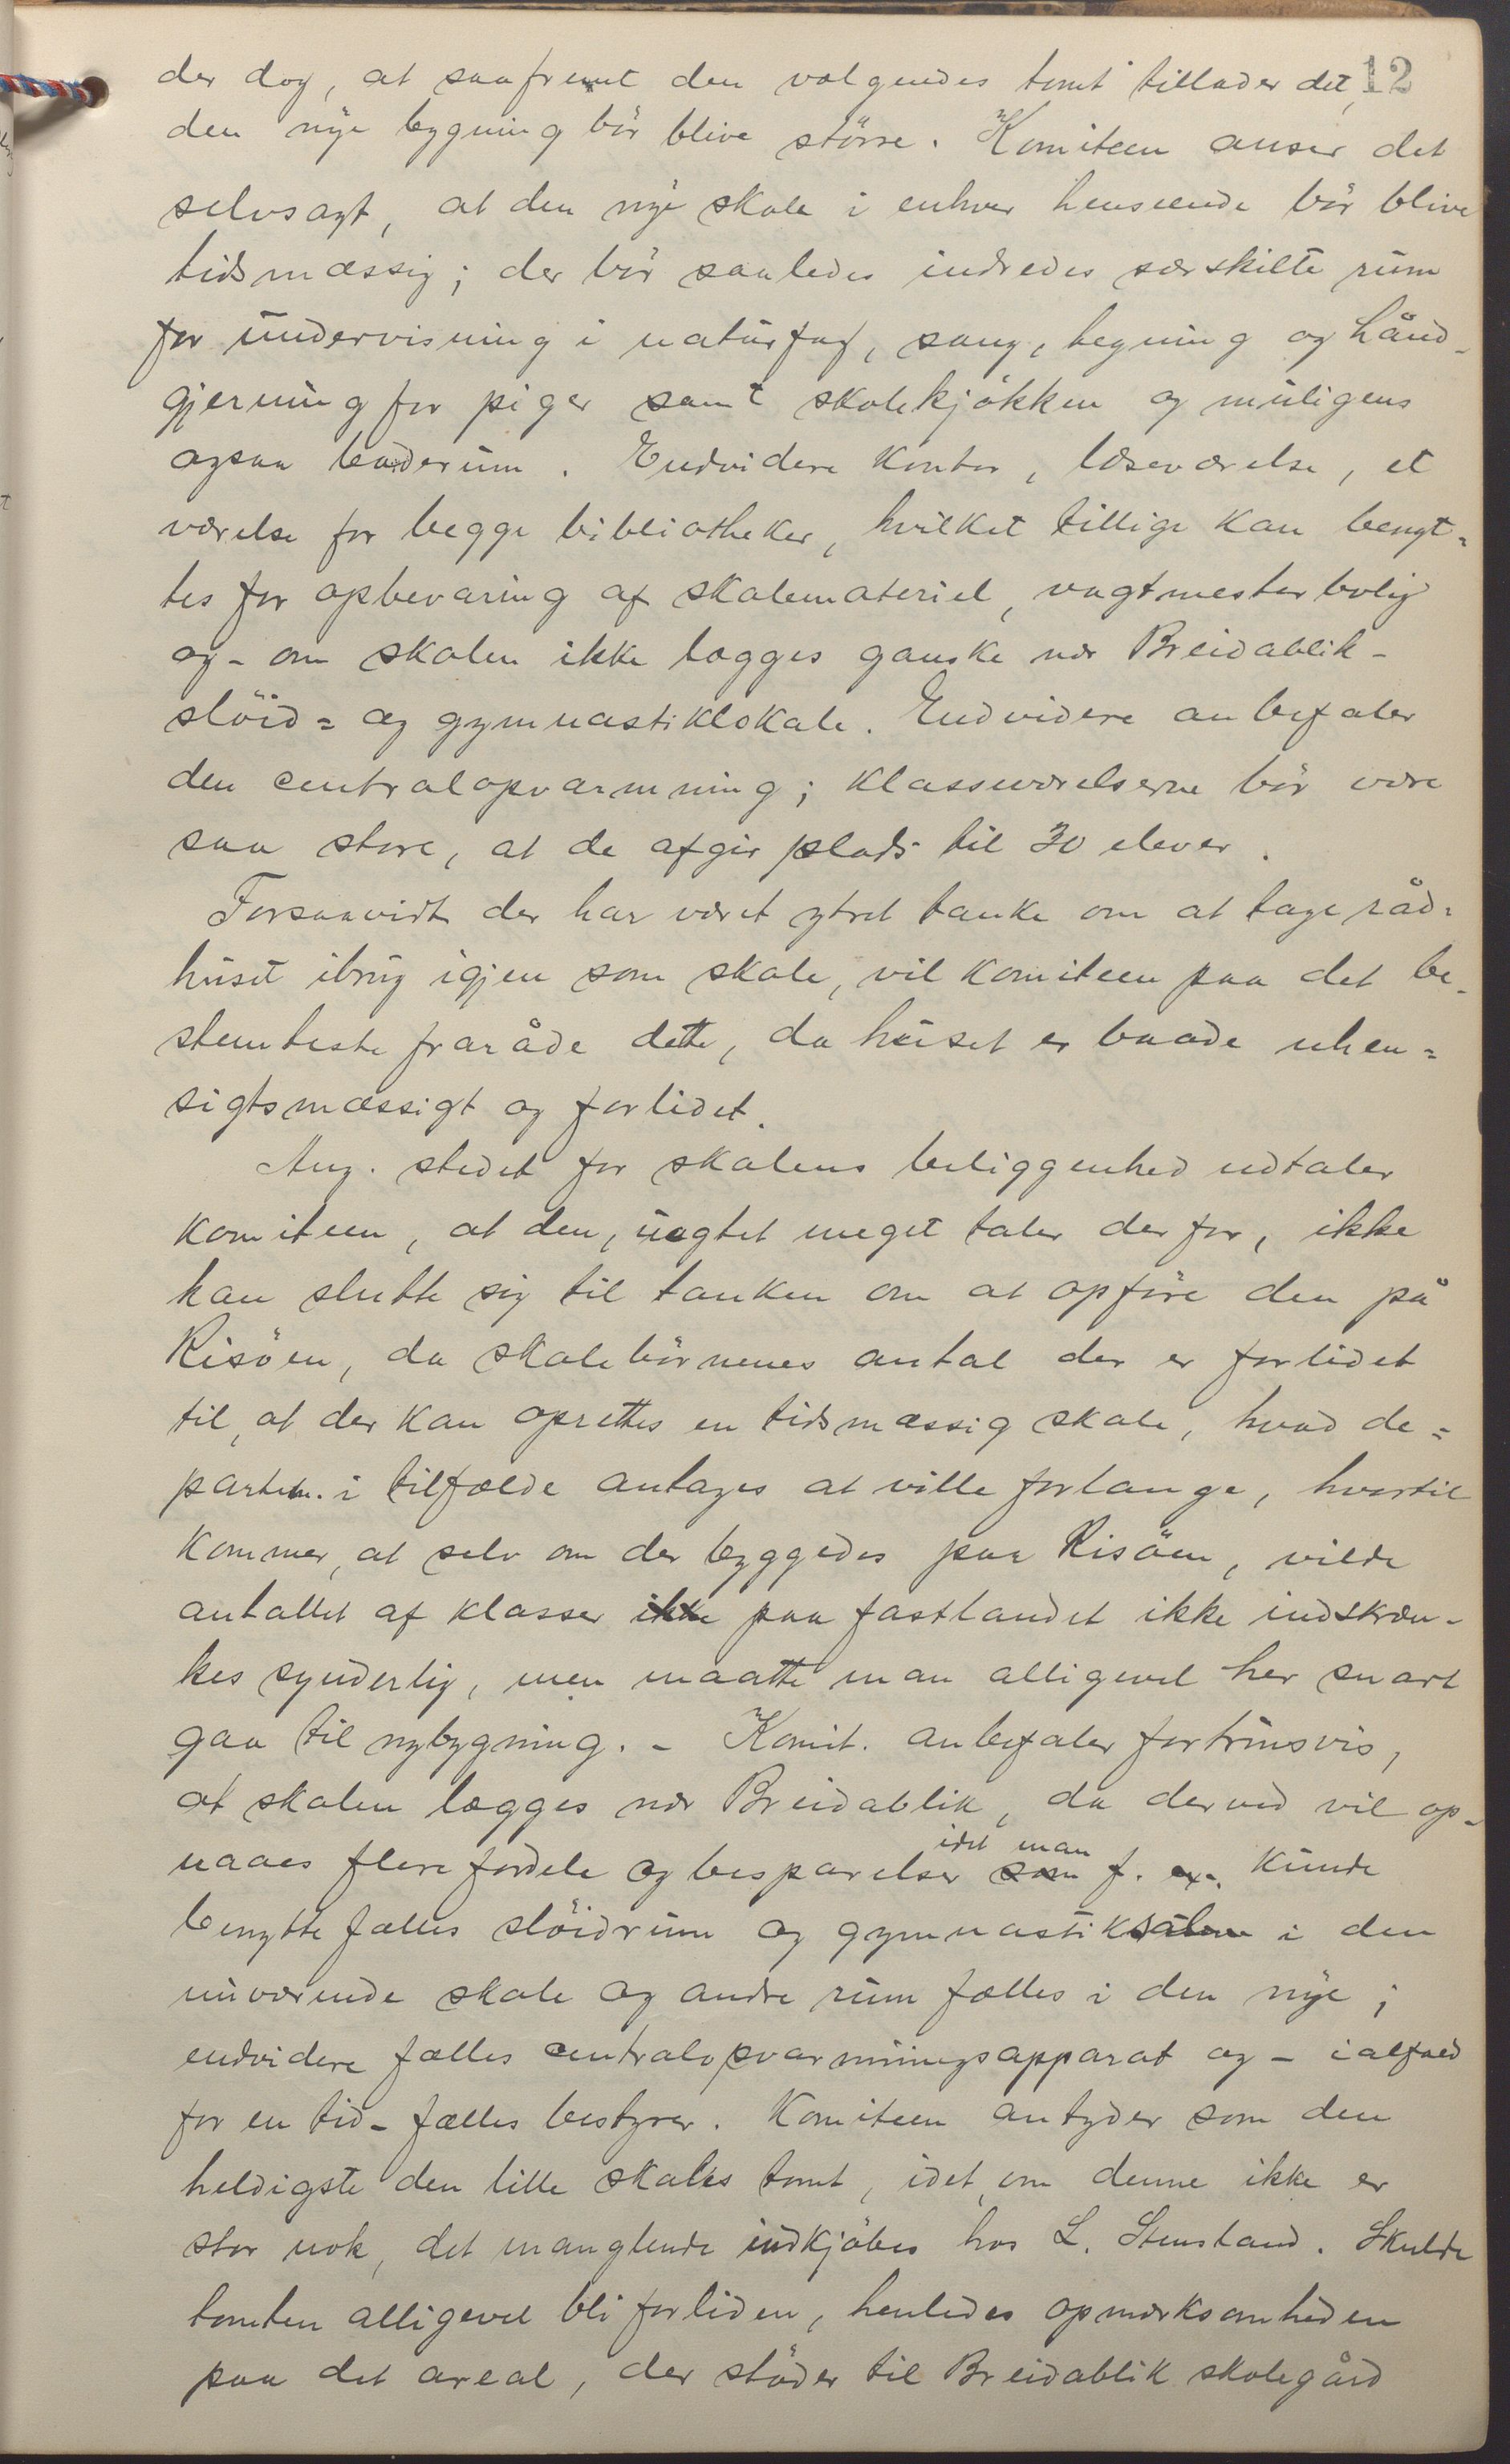 der dog, at saafremt den valgendes tomt tillader det, 12
den nye bygning bör blive större. Komiteen anser det
selvsagt, at den nye skole i enhver henseende bör blive
tidsmæssig; der bör saaledes indredes særskilte rum
for undervisning i naturfag, sang, tegning og hånd-
gjerning for piger samt skolekjökken og muligens
ogsaa baderum. Endvidere kontor, læseværelse, et
værelse for begge bibliotheker, hvilket tillige kan benyt=
tes for opbevaring af skolemateriel, vagtmesterbolig
og - om skolen ikke lægges ganske nær Breidablik -
slöid= og gymnastiklokale. Endvidere anbefaler
den centralopvarmning; klasseværelserne bör være
saa store, at de afgir plads til 30 elever.
Forsaavidt der har været ytret tanke om at tage råd=
huset ibrug igjen som skole, vil komiteen paa det be-
stemteste fraråde dette, da huset er baade uhen=
sigtsmæssigt og forlidet.
Ang. stedet for skolens beliggenhed udtaler
komiteen, at den, uagtet meget taler derfor, ikke
kan slutte sig til tanken om at opföre den på
Risöen, da skolebörnenes antal der er forlidet
til, at der kan oprettes en tidsmæssig skole, hvad de=
partem. i tilfælde antages at ville forlange, hvortil
kommer, at selv om der byggedes paa Risöen, vilde
antallet af klasser ikke paa fastlandet ikke indskræn-
kes synderlig, men maatte man alligevel her snart
gaa til nybygning. - Komit. anbefaler fortrinsvis,
at skolen lægges nær Breidablik, da derved vil op-
naaes flere fordele og besparelser som idet man f. ex. kunde
benytte fælles slöidrum og gymnastiksalene i den
nuværende skole og andre rum fælles i den nye;
endvidere fælles centralopvarmningsapparat og - ialfald
for en tid - fælles bestyrer. Komiteen antyder som den
heldigste den lille skoles tomt, idet, om denne ikke er
stor nok, det manglende indkjöbes hos L. Stensland. Skulde
tomten alligevel bli forliden, henledes opmærksomheden
paa det areal, der stöder til Breidablik skolegård